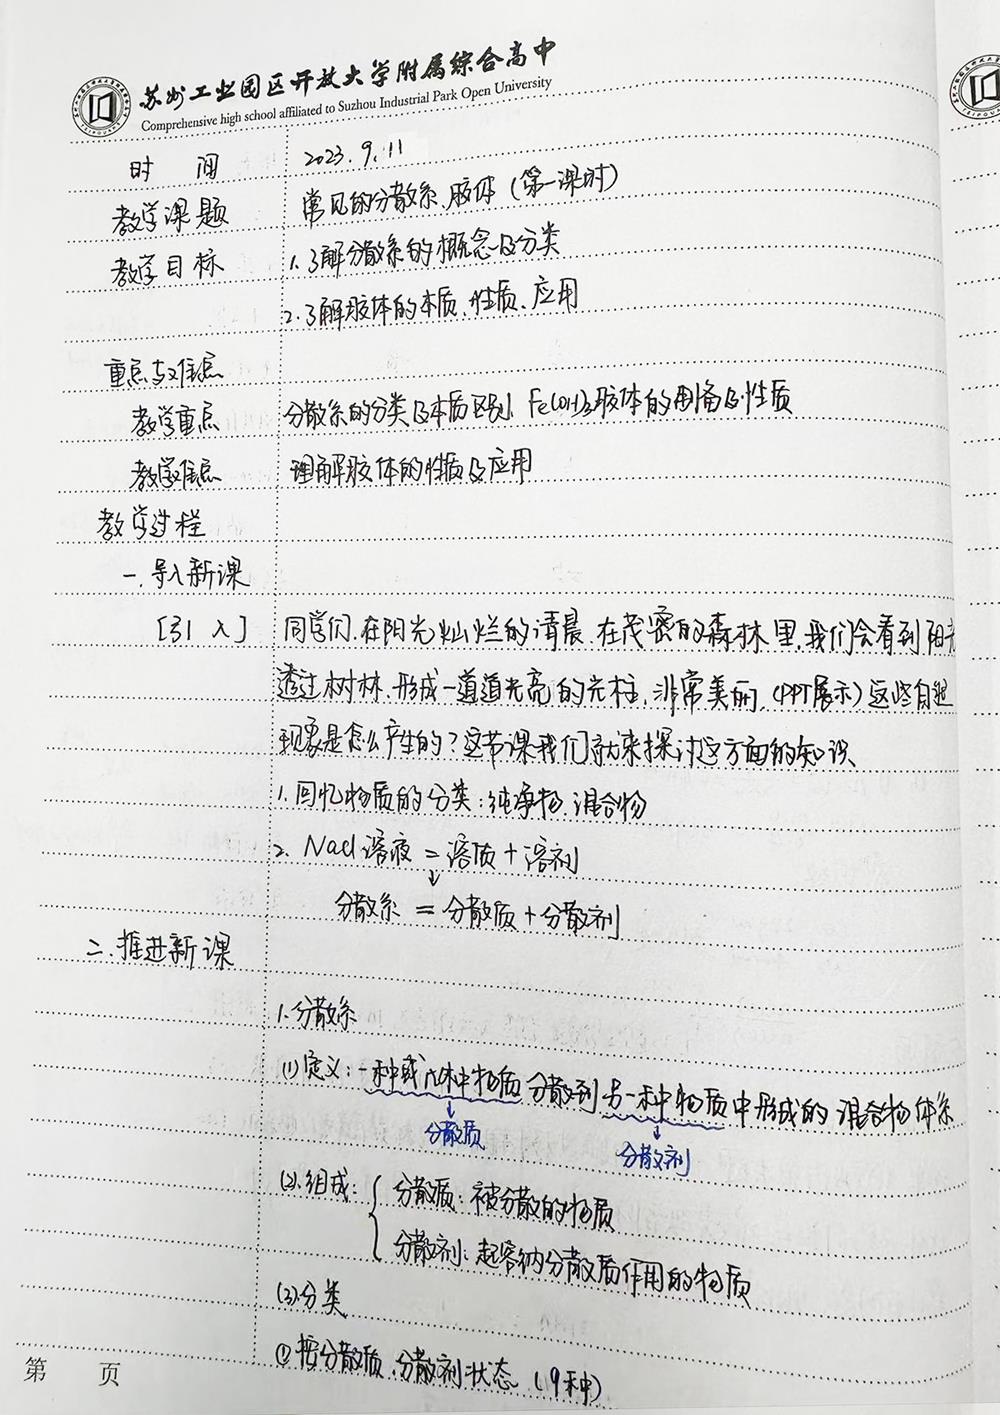 苏州工业园区开放大学附属综合高中
Comprehensive high school affiliated to Suzhou Industrial Park Open University
时 间 2023.9.11
教学课题 常见的分散系、胶体(第一课时)
教学目标 1.了解分散系的概念及分类
2.了解胶体的本质、性质、应用
重点与难点
教学重点 分散系的分类及本质区别、Fe(OH)3胶体的制备及性质
教学难点 理解胶体的性质及应用
教学过程
一.导入新课
[引 入] 同学们,在阳光灿烂的清晨,在茂密的森林里,我们会看到阳光
透过树林,形成一道道光亮的光柱,非常美丽,(PPT展示)这些自然
现象是怎么产生的?这节课我们就来探讨这方面的知识、
1.回忆物质的分类:纯净物、混合物
2. NaCl溶液 = 溶质 + 溶剂
↓
分散系 = 分散质 + 分散剂
二.推进新课
1.分散系
(1)定义:一种或几种物质分散到另一种物质中形成的混合物体系
↓ ↓
分散质 分散剂
(2).组成: { 分散质:被分散的物质
分散剂:起容纳分散质作用的物质
(3).分类
①按分散质、分散剂状态(9种)
第 页